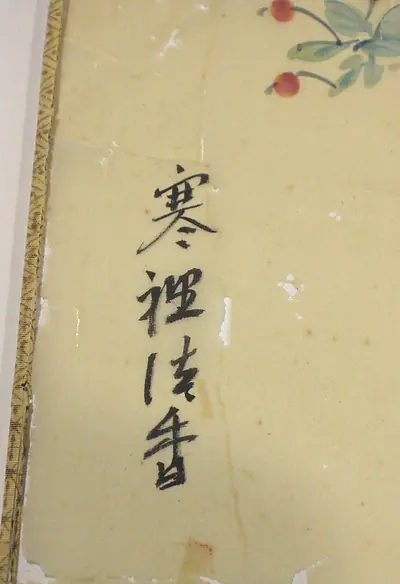 寒裡清香